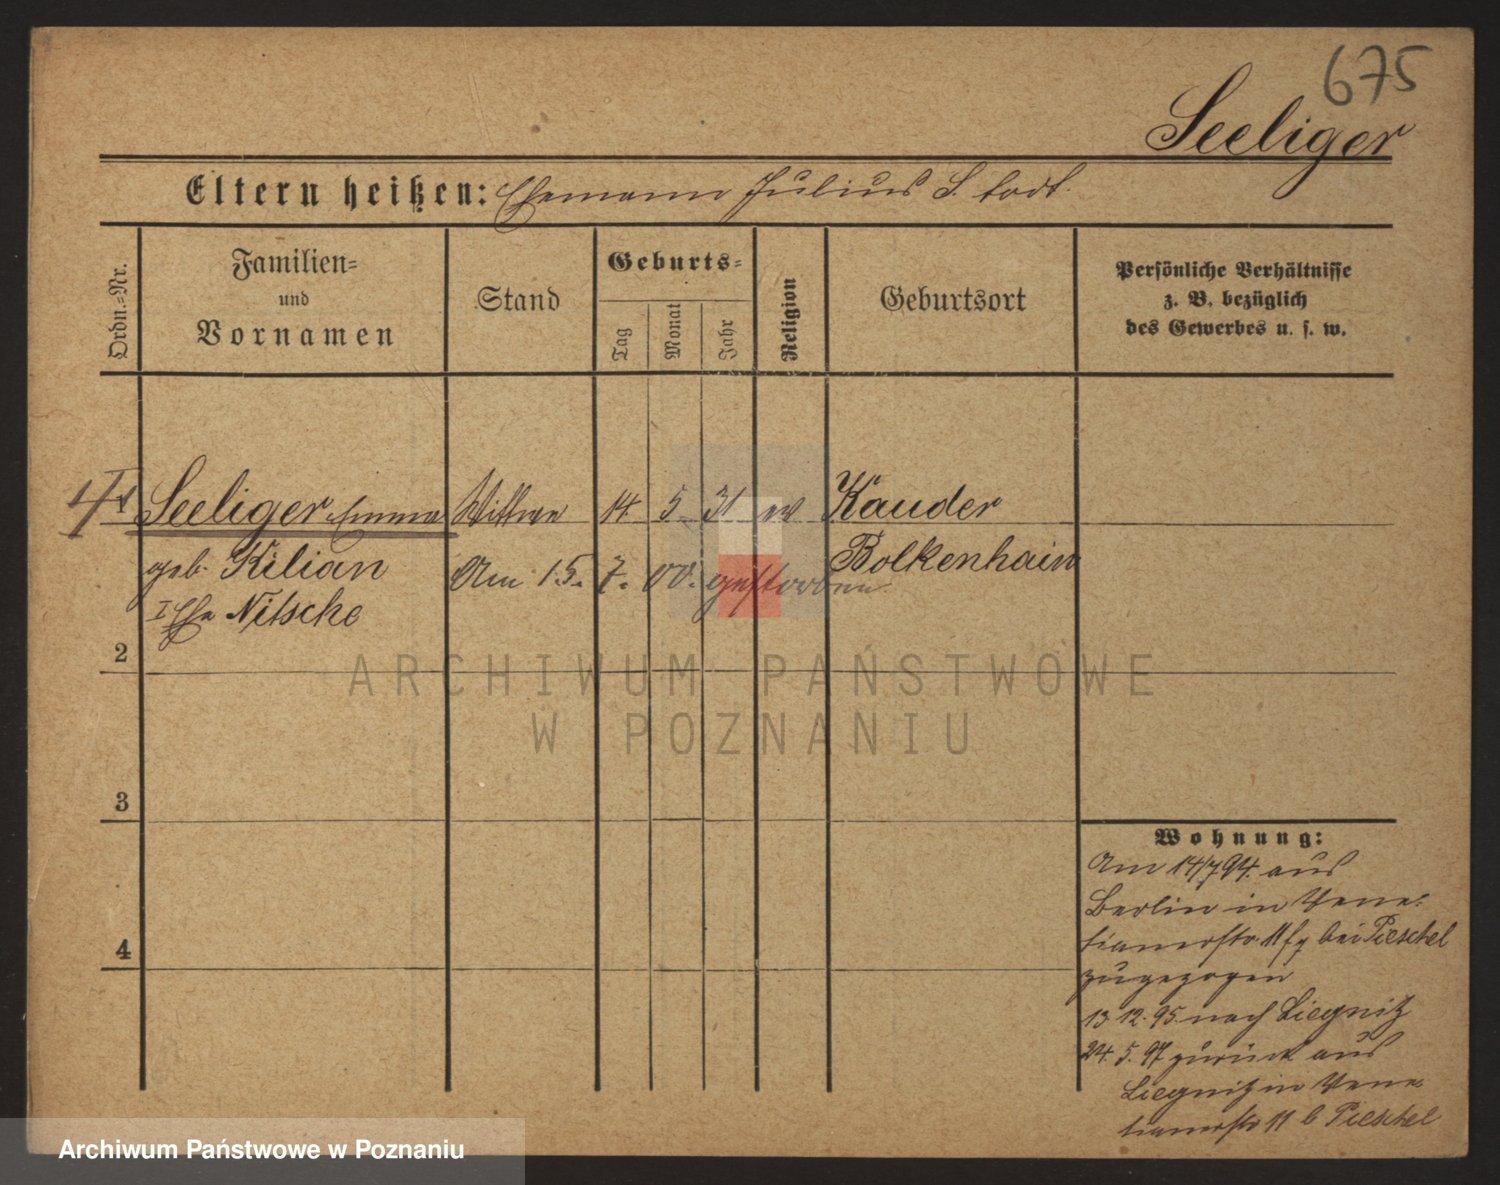 675
Seeliger
Eltern heißen: Ehemann Julius S. todt.
Ordn.=Nr.
Familien=
und
Vornamen
Stand
Geburts=
Tag
Monat
Jahr
Religion
Geburtsort
Persönliche Verhältnisse
z. B. bezüglich
des Gewerbes u. s. w.
1 Seeliger Emma Wittwe 14 5 31 ev Kauder
geb. Kilian Am 15. 7. 00. gestorben Bolkenhain
I Ehe Nitsche
2
3
4
Wohnung:
Am 14/7 94. aus
Berlin in Vene-
tianerstr. 11 bei Pieschel
zugezogen
13 12. 95. nach Liegnitz
24. 5. 97 zurück aus
Liegnitz in Vene-
tianerstr 11 b Pieschel
ARCHIWUM PAŃSTWOWE
W POZNANIU
Archiwum Państwowe w Poznaniu